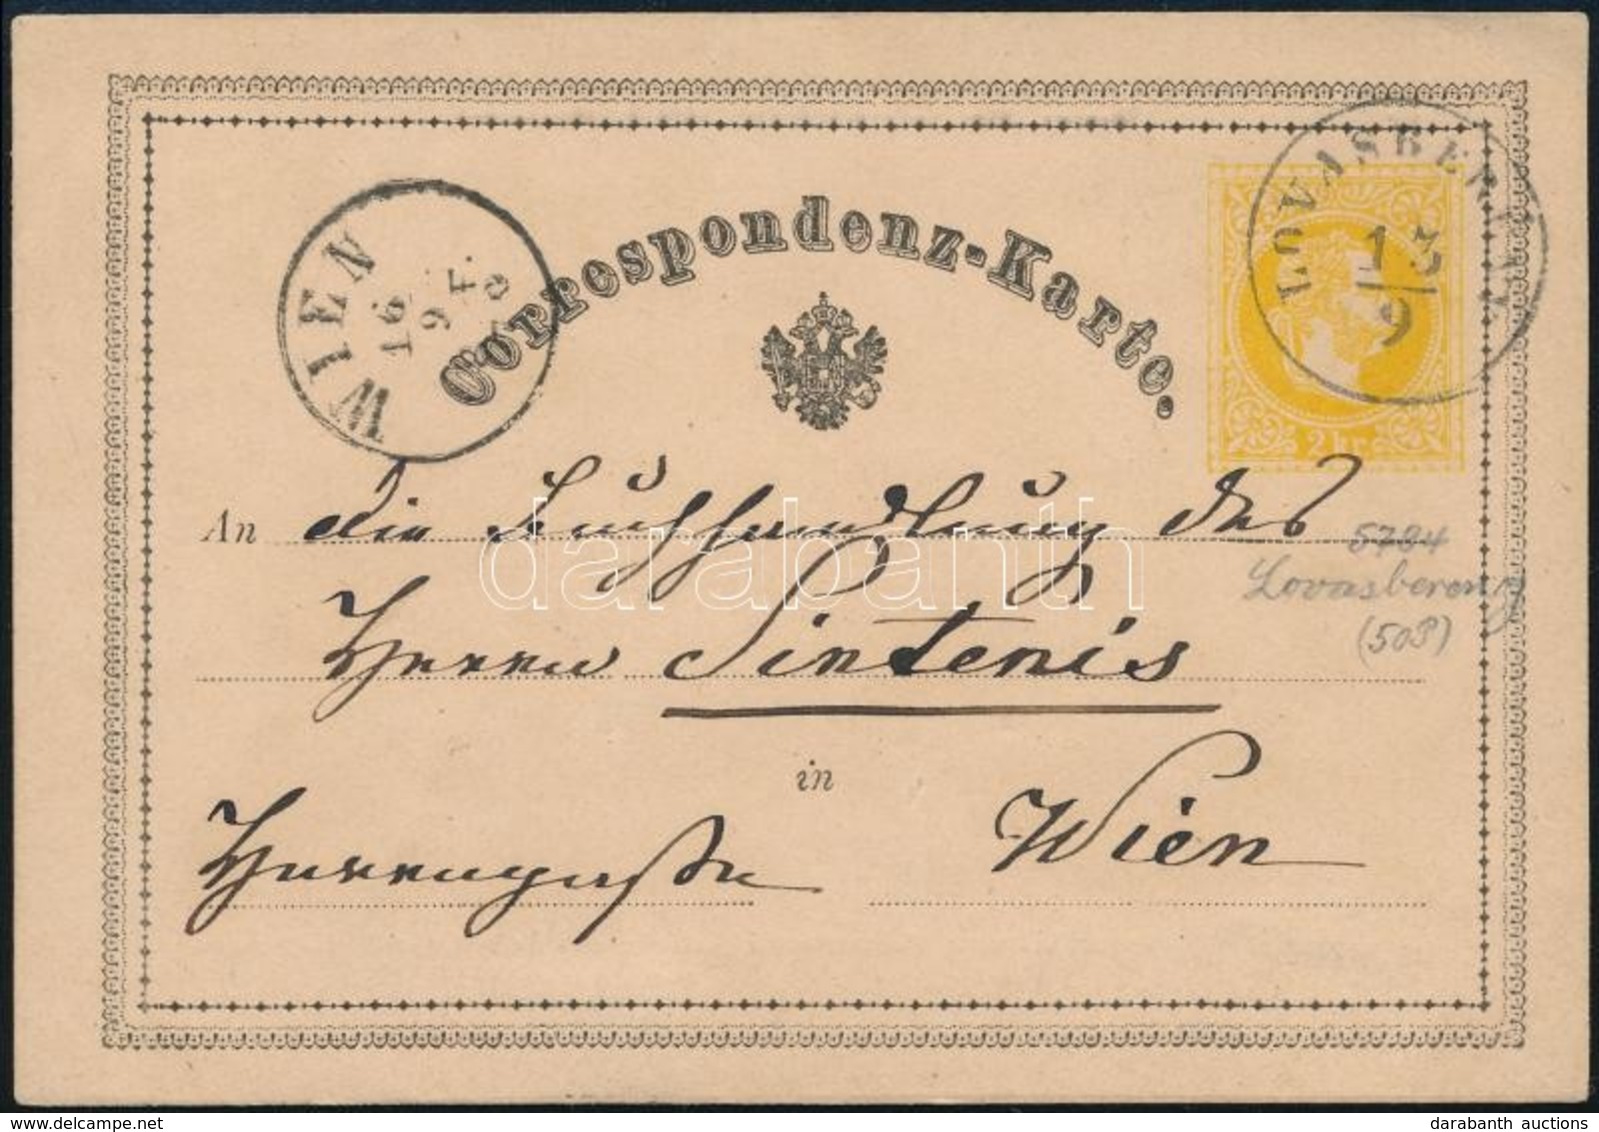 Correspondenz-Karte.
WIEN
16 9 F.
LOVASBERÉNY
13
9
2 kr
An die Buchhandlung des
Herrn Sintenis
in
Herrengasse
Wien
5784
Lovasberény
(50P)
darabanth
darabanth auctions
delcampe.net